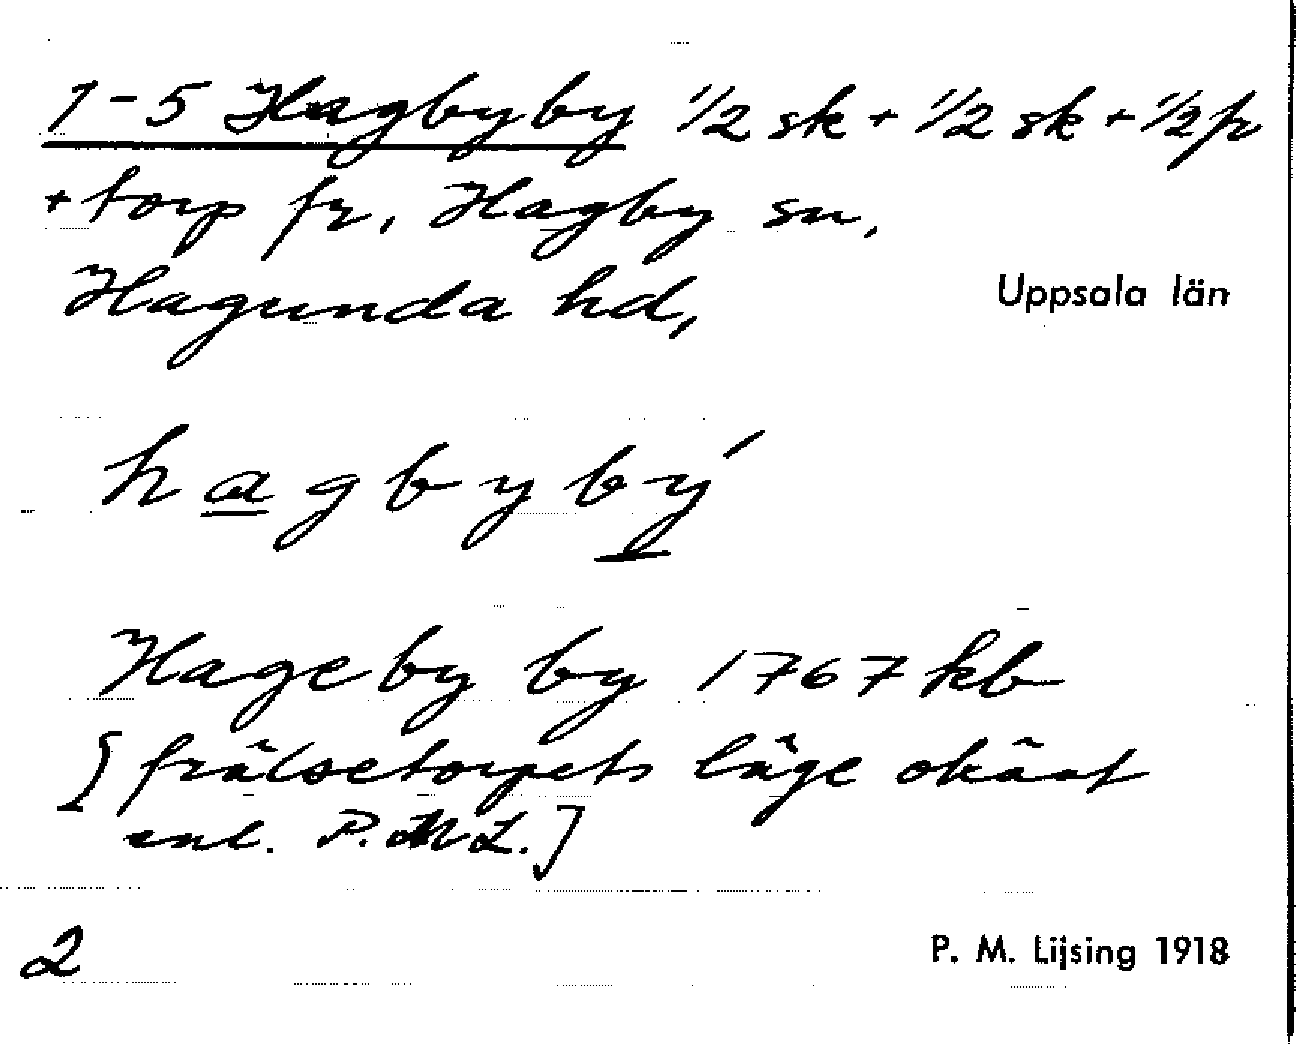 1-5 Hagbyby ½ sk + ½ sk + ½ fr
+ torp fr. Hagby sn,
Hagunda hd,
Uppsala län
hagbybý
Hageby by 1767 kb
[frälsetorpets läge okänt
enl. P.M.L.]
2
P. M. Lijsing 1918